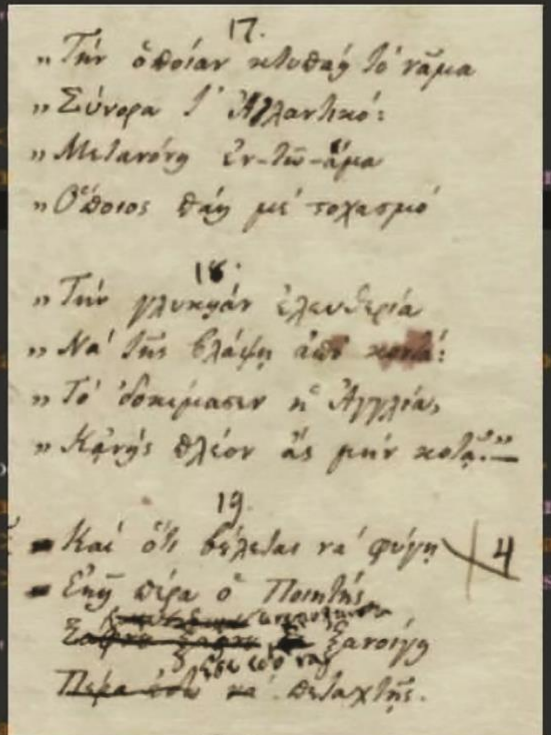 17.
„Τὴν ὁποίαν κτυπάῃ τὸ νᾶμα
„Σύνορα τ' Ἀτλαντικό:
„Μετανόῃ ἐν-τῷ-ἅμα
„Ὅποιος πάῃ μὲ στοχασμό
18.
„Τὴν γλυκῃὰν ἐλευθερία
„Νὰ τῆς βλάψῃ ἀπὸ κοντά:
„Τὸ 'δοκίμασεν κ' Ἀγγλία,
„Κᾀνεὶς πλέον ἂς μὴν κοτᾷ."—
19.
Καὶ ὅτι βέλεται νὰ φύγῃ 4
Ἐκῇ πέρα ὁ Ποιητής,
ξανοίγῃ
Πέρα νὰ πεταχτῇς.